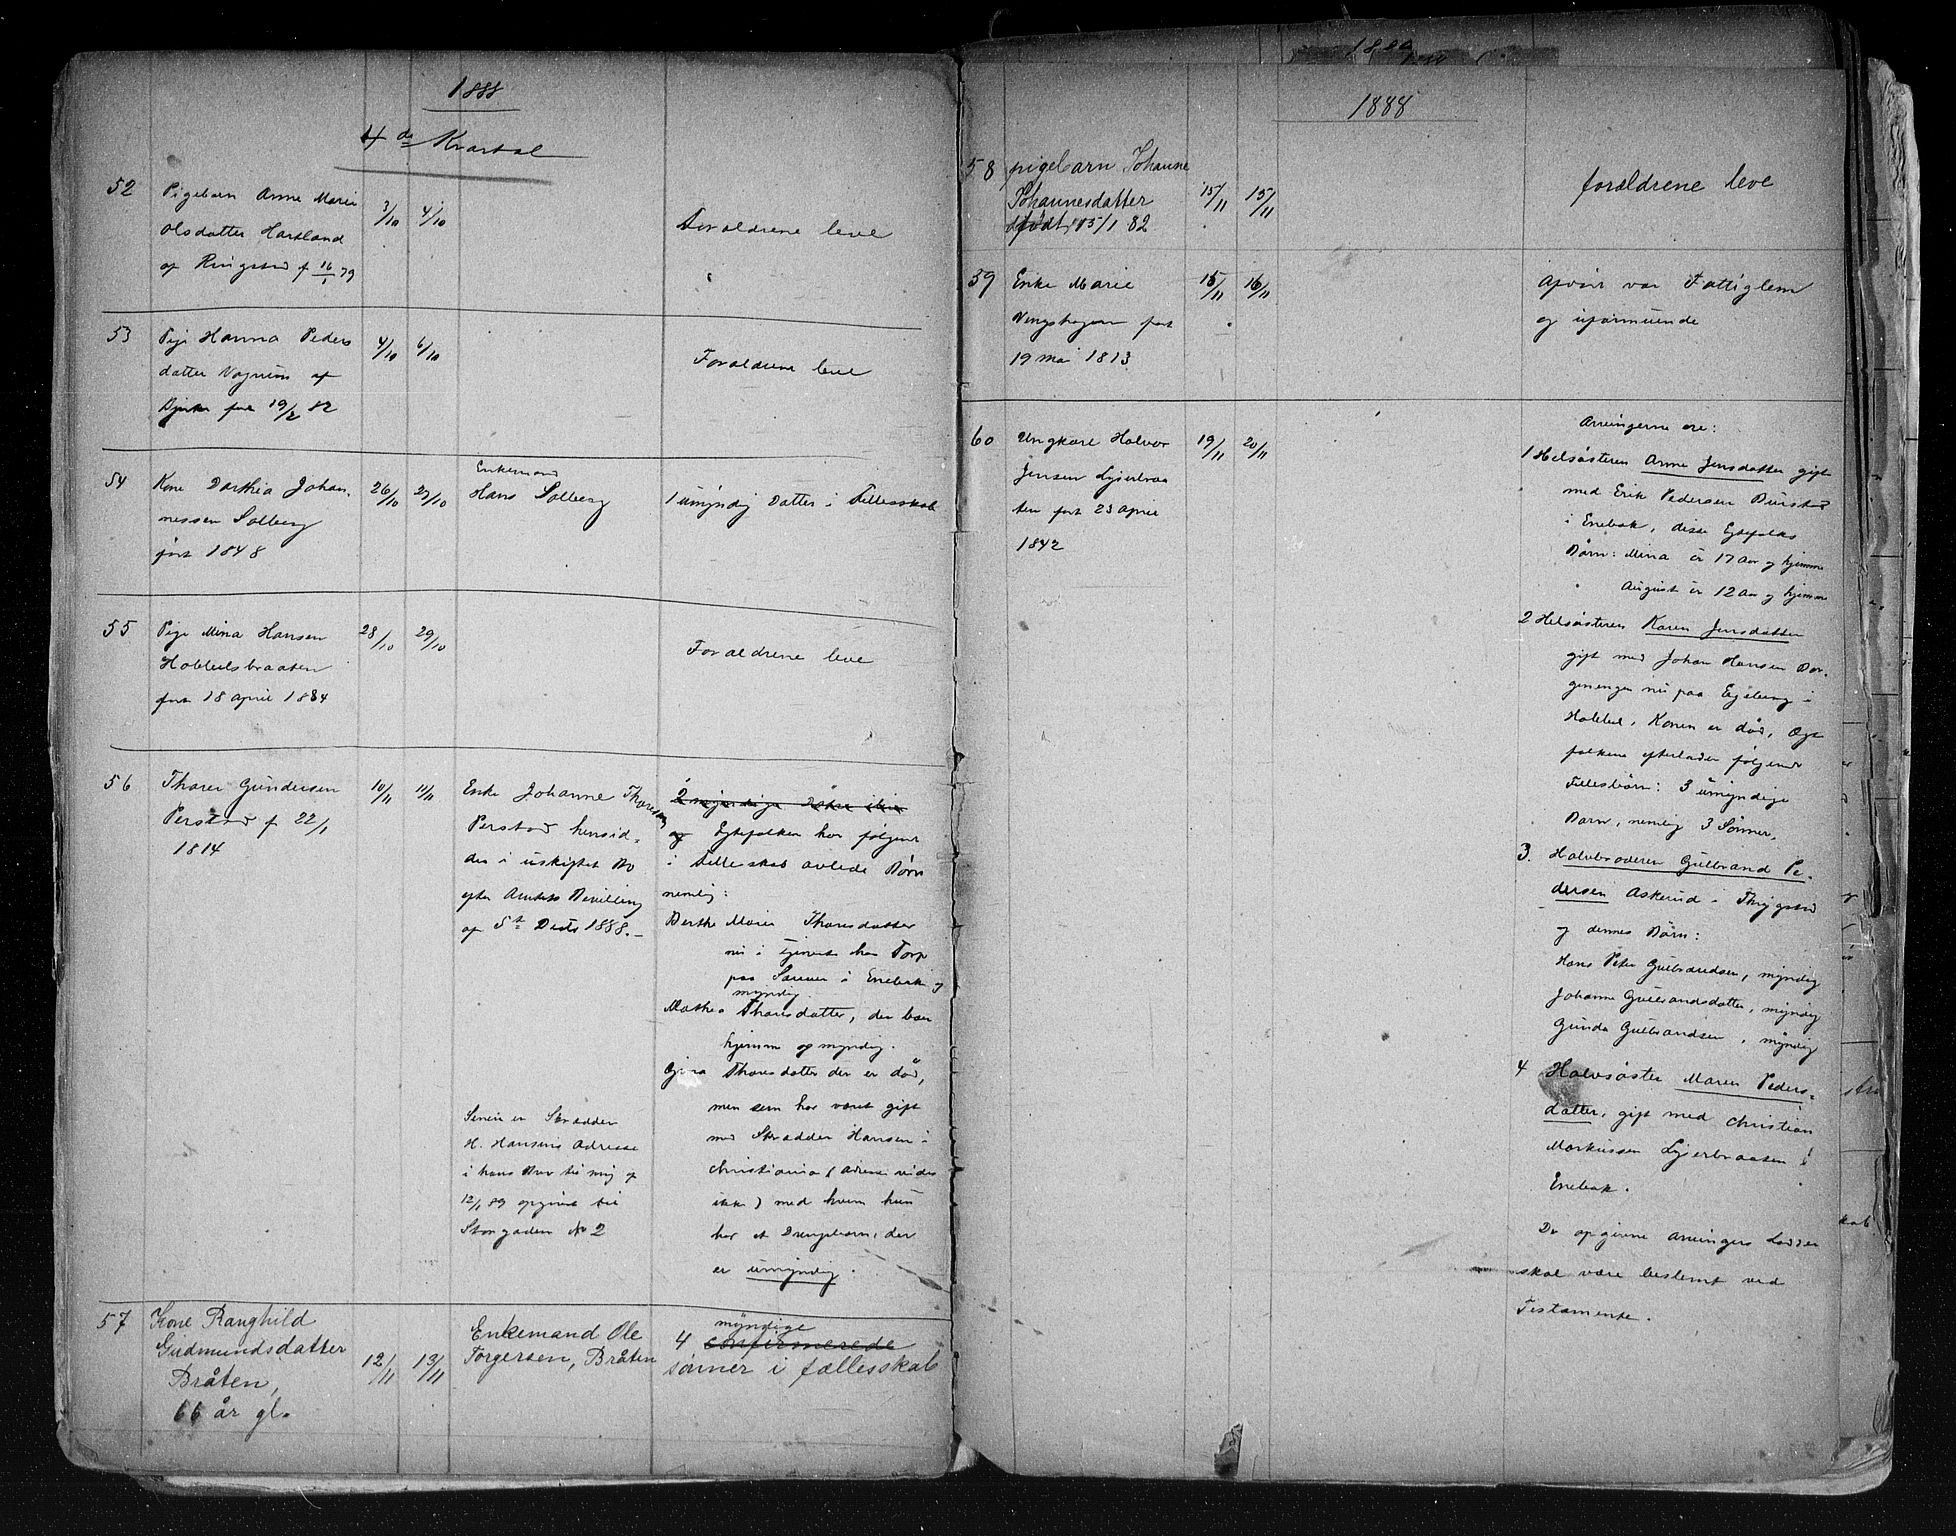 1888
4de Kvartal
52 Pigebarn Anne Marie 3/10 4/10
Olsdatter Hartland Forældrene leve
af Ringstad f 16/1 79
53 Pige Hanna Peders 4/10 6/10
datter Forældrene leve
født 19/2 82
54 Kone Dorthea Johan- 26/10 27/10 Enkemand
nessen Solberg Hans Solberg 1 umyndig Datter i Fællesskab
født 1848
55 Pige Mina Hansen 28/10 29/10
Hobbelsbraaten Forældrene leve
født 18 april 1884
56 Thorer Gundersen 10/11 11/11
Perstad f 22/1
1814
Enke Johanne Thoresen
Perstad hensid-
der i uskiftet Bo
efter Amtets Bevilling
af 5t Decbr 1888.-
Senere er Skrædder
H. Hansens Adresse
i hans Brev til mig af
12/1 89 opgivet til
Storgaden No 2
2 myndige Døtre
og Egtefolken har følgende
i Fællesskab avlede Børn
nemlig:
Berthe Marie Thorsdatter
nu i Tjeneste hos Torp
paa i Enebak og
myndig
Mathea Thorsdatter, der bær
hjemme og myndig.
Gina Thorsdatter der er død,
men som har været gift
med Skrædder Hansen i
Christiania (Adresse vides
ikke) med hvem hun
har et Drengebarn, der
er umyndig.
57 Kone Ranghild
Gudmundsdatter
Bråten, 12/11 13/11
66 år gl.
Enkemand Ole
Torgersen, Bråten
myndige
4 confirmerede
sønner i fællesskab
1889
1888
58 pigebarn Johanne
Johannesdatter 15/11 15/11 forældrene leve
født 15/1 82
59 Enke Marie 15/11 16/11 Afdøde var Fattiglem
født og uformuende
19 mai 1813
60 Ungkarl Halvor 19/11 20/11
Jensen Lyserbraa
ten født 23 april
1842
Arvingerne ere:
1 Helsøsteren Anne Jensdatter gift
med Erik Pedersen
i Enebak, disse Egtefolks
Børn: Mina er 17 Aar og hjemme
August er 12 Aar og hjemme
2 Helsøsteren Karen Jensdatter
gift med Johan Hansen
nu paa Egeberg i
Hobbel, Konen er død, Egte
folkene efterlader følgende
Fællesbørn: 3 umyndige
Børn, nemlig 3 Sønner,
3. Halvbroderen Gulbrand Pe-
dersen Askerud i Thrygstad
og dennes Børn:
Hans Peter Gulbrandsen, myndig
Johanne Gulbrandsdatter, myndig
Gunda Gulbrandsen, myndig
4 Halvsøster Maren Peders-
datter, gift med Christian
Markussen Lyserbraaten i
Enebak.
De opgivne arvingers
skal være bestemt ved
Testamente.